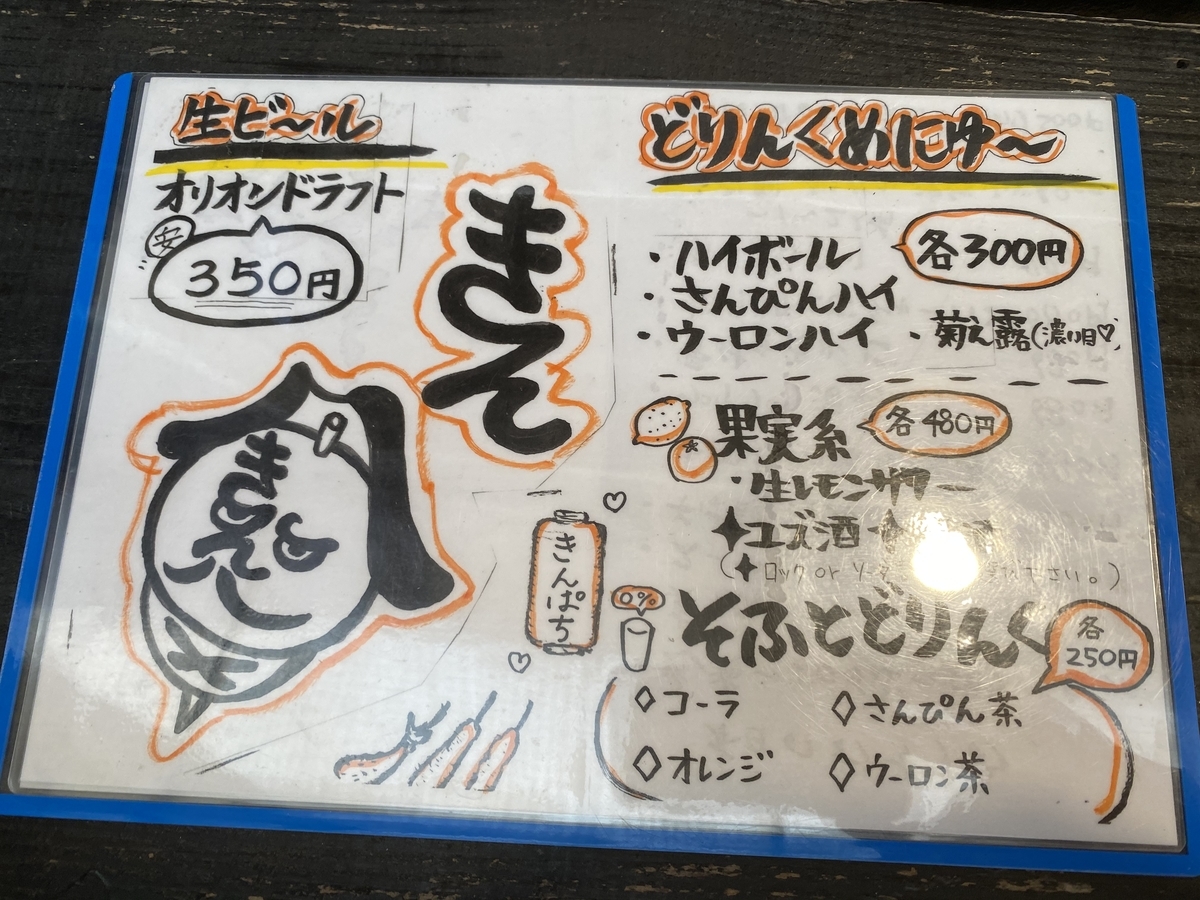 生ビ〜ル
オリオンドラフト
安
350円
きて
きんぱち
どりんくめにゅ〜
各300円
・ハイボール
・さんぴんハイ
・ウーロンハイ ・菊之露(濃い目♡)
果実系 各480円
・生レモンサワー
✦ユズ酒✦
(✦ロック or ソーダ さい。)
0%
そふとどりんく
各250円
◇コーラ ◇さんぴん茶
◇オレンジ ◇ウーロン茶